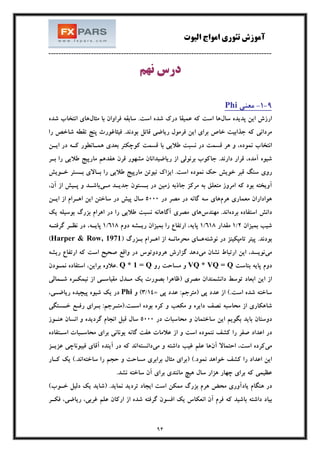 آموزش تئوری امواج الیوت
FX PARS
درس نهم
۹-۱- معنی Phi
ارزش این پدیده سال‌ها است که عمیقا درک شده است. سابقه فراوان با مثال‌های انتخاب شده
مردانی که جذابیت خاص برای این فرمول ریاضی قائل بودند. فیثاغورث پنج نقطه شاخص را
انتخاب نموده، و هر قسمت در نسبت طلایی با قسمت کوچکتر بعدی همانطور کـه در ایـن
شیوه آمده، قرار دارند. جاکوب برنولی از ریاضیدانان مشهور قرن هفدهم مارپیچ طلایی را بـر
روی سنگ قبر خویش حک نموده است. ایزاک نیوتن مارپیچ طلایی را بـالای بسـتر خـویش
آویخته بود که امروز متعلق به مرکز جاذبه زمین در بسـتون جدیـد مـی‌باشـد و پـیش از آن.
هواداران معماری هرم‌های سه گانه در مصر در ۵۰۰۰ سال پیش در ساختن این اهـرام از ایـن
دانش استفاده برده‌اند. مهندس‌های مصری آگاهانه نسبت طلایی را در اهرام بزرگ بوسیله یک
شیب بمیزان ۱/۲ مقدار ۱/۶۱۸ پایه، ارتفاع را بمیزان ریشـه دوم ۱/۶۱۸ پایـه، در نظـر گرفتـه
بودند. پیتر تامپکینز در نوشته‌هـای محرمانـه از اهـرام بـزرگ (Harper & Row, 1971)
می‌نویسـد، این ارتباط نشان می‌دهد گزارش هرودوتوس در واقع صحیح است که ارتفاع ریشه
دوم پایه بتاست VQ * VQ = Q و مساحت رو Q * 1 = Q. علاوه براین، استفاده نمـودن
از این ابعاد توسط دانشمندان مصری (ظاهرا بصورت یک مـدل مقیاسـی از نیمکـره شـمالی
ساخته شده است.) از عدد پی (مترجم: عدد پی =۳/۱۴) و Phi در یک شیوه پیچیده ریاضـی،
شاهکاری از محاسبه نصف دایره و مکعب و کره بوده است.(متـرجم: بـرای رفـع خسـتگی
دوستان باید بگویم این ساختمان و محاسبات در ۵۰۰۰ سال قبل انجام گردیده و انسان هنـوز
در اعداد صفر را کشف ننموده است و از علامات هفت گانه یونانی برای محاسـبات اسـتفاده
می‌کرده است. احتمالا آن‌ها علم غیب داشته و می‌دانسته‌اند که در آینده آقای فیبوناچی عزیـز
این اعداد را کشف خواهد نمود.) (برای مثال برابری مساحت و حجم را ساخته‌اند.) یک کـار
عظیمی که برای چهار هزار سال هیچ مانندی برای آن ساخته نشد.
در هنگام یادآوری محض هرم بزرگ ممکن است ایجاد تردید نمایند. (شاید یک دلیل خـوب)
بیاد داشته باشید که فرم آن انعکاس یک افسون گرفته شده از ارکان علم غربی، ریاضی، فکـر
۹۳